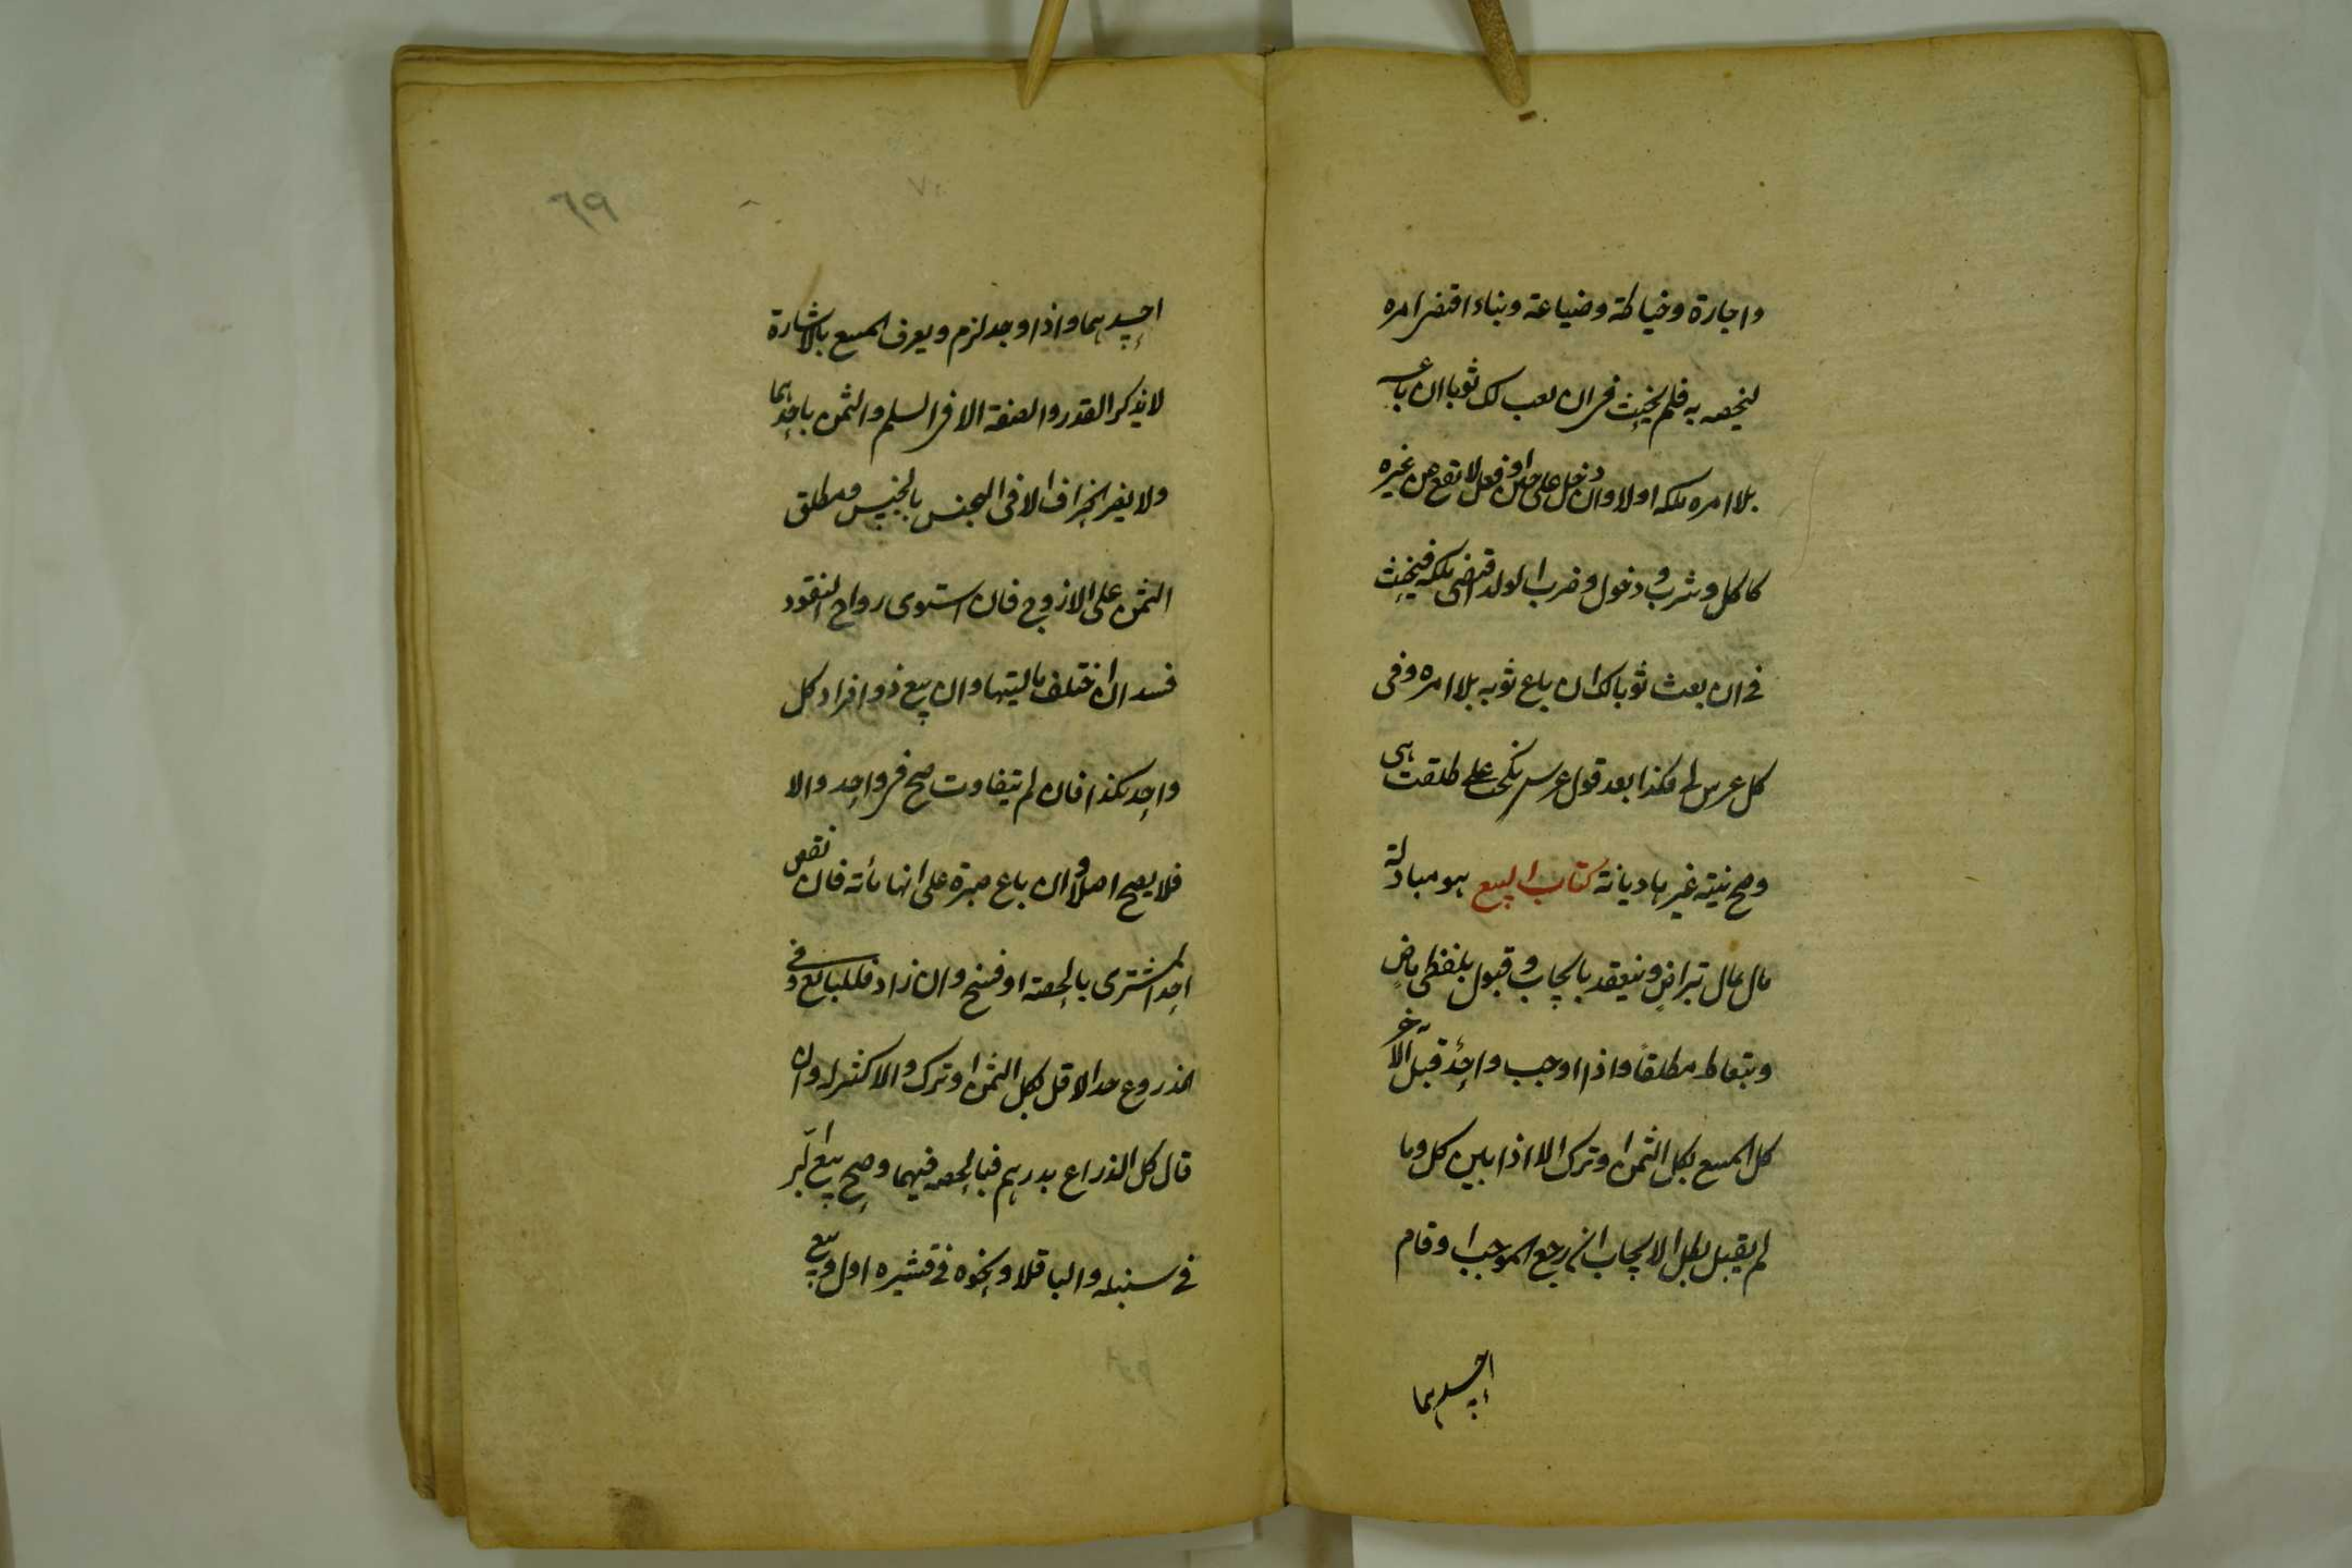 واجارة وخياطة وضياعة وبناء اقتضى امره
ليخصه به فلم يحنث فى ان بعت لك ثوبا ان باعه
بلا امره ملكه اولا وان دخل على عين او فعل لا تقع عن غيره
كاكل وشرب ودخول وضرب الولد اقتضى ملكه فيحنث
فى ان بعت ثوبا لك ان باع ثوبه بلا امره وفى
كل عرس لى فكذا بعد قول عرسه نكحت على طلقت هى
وصح نية غيرها ديانة كتاب البيع هو مبادلة
مال بمال بتراض وينعقد بايجاب وقبول بلفظى ماض
وبتعاط مطلقا واذا اوجب واحد قبل الآخر
كل المبيع بكل الثمن او ترك الا اذا بين كل وما
لم يقبل بطل الايجاب ان رجع الموجب او قام
احدهما
٦٩
احدهما واذا وجد لزم ويعرف المبيع بالاشارة
لا يذكر القدر والصفة الا فى السلم والثمن باحدهما
ولا يضر الجزاف الا فى الجنس بالجنس ومطلق
الثمن على الاروج فان استوى رواج النقود
فسد ان اختلف ماليتها وان بيع ذو افراد كل
واحد بكذا فان لم يتفاوت صح فى واحد والا
فلا يصح اصلا وان باع صبرة على انها مائة فان نقص
اخذ المشترى بالحصة او فسخ وان زاد فللبائع وفى
المذروع اخذ الاقل بكل الثمن او ترك والاكثر له وان
قال كل الذراع بدرهم فبالحصه فيهما وصح بيع البر
فى سنبله والباقلا ونحوه فى قشيره اول وبيع